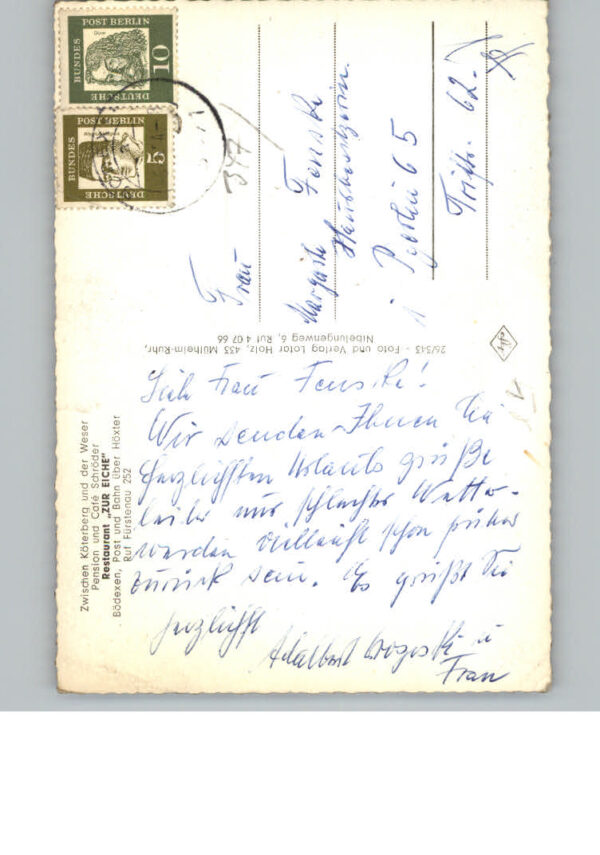 Zwischen Köterberg und der Weser
Pension und Café Schröder
Restaurant „ZUR EICHE"
Bödexen, Post und Bahn über Höxter
Ruf Fürstenau 252
Frau Fenske!
Wir senden Ihnen die
herzlichsten Urlaubsgrüße
leider nur schlechtes Wetter.
werden vielleicht schon früher
zurück sein. Es grüßt Sie
herzlichst
Adalbert u
Frau
26/343 - Foto und Verlag Lotar Holz, 433 Mülheim-Ruhr,
Nibelungenweg 6, Ruf 4 07 66
Frau
Margarete Fenske
Hausbesitzerin
1 Berlin 65
Triftstr. 62
347
DEUTSCHE
BUNDES
POST BERLIN
10
DEUTSCHE
BUNDES
POST BERLIN
5